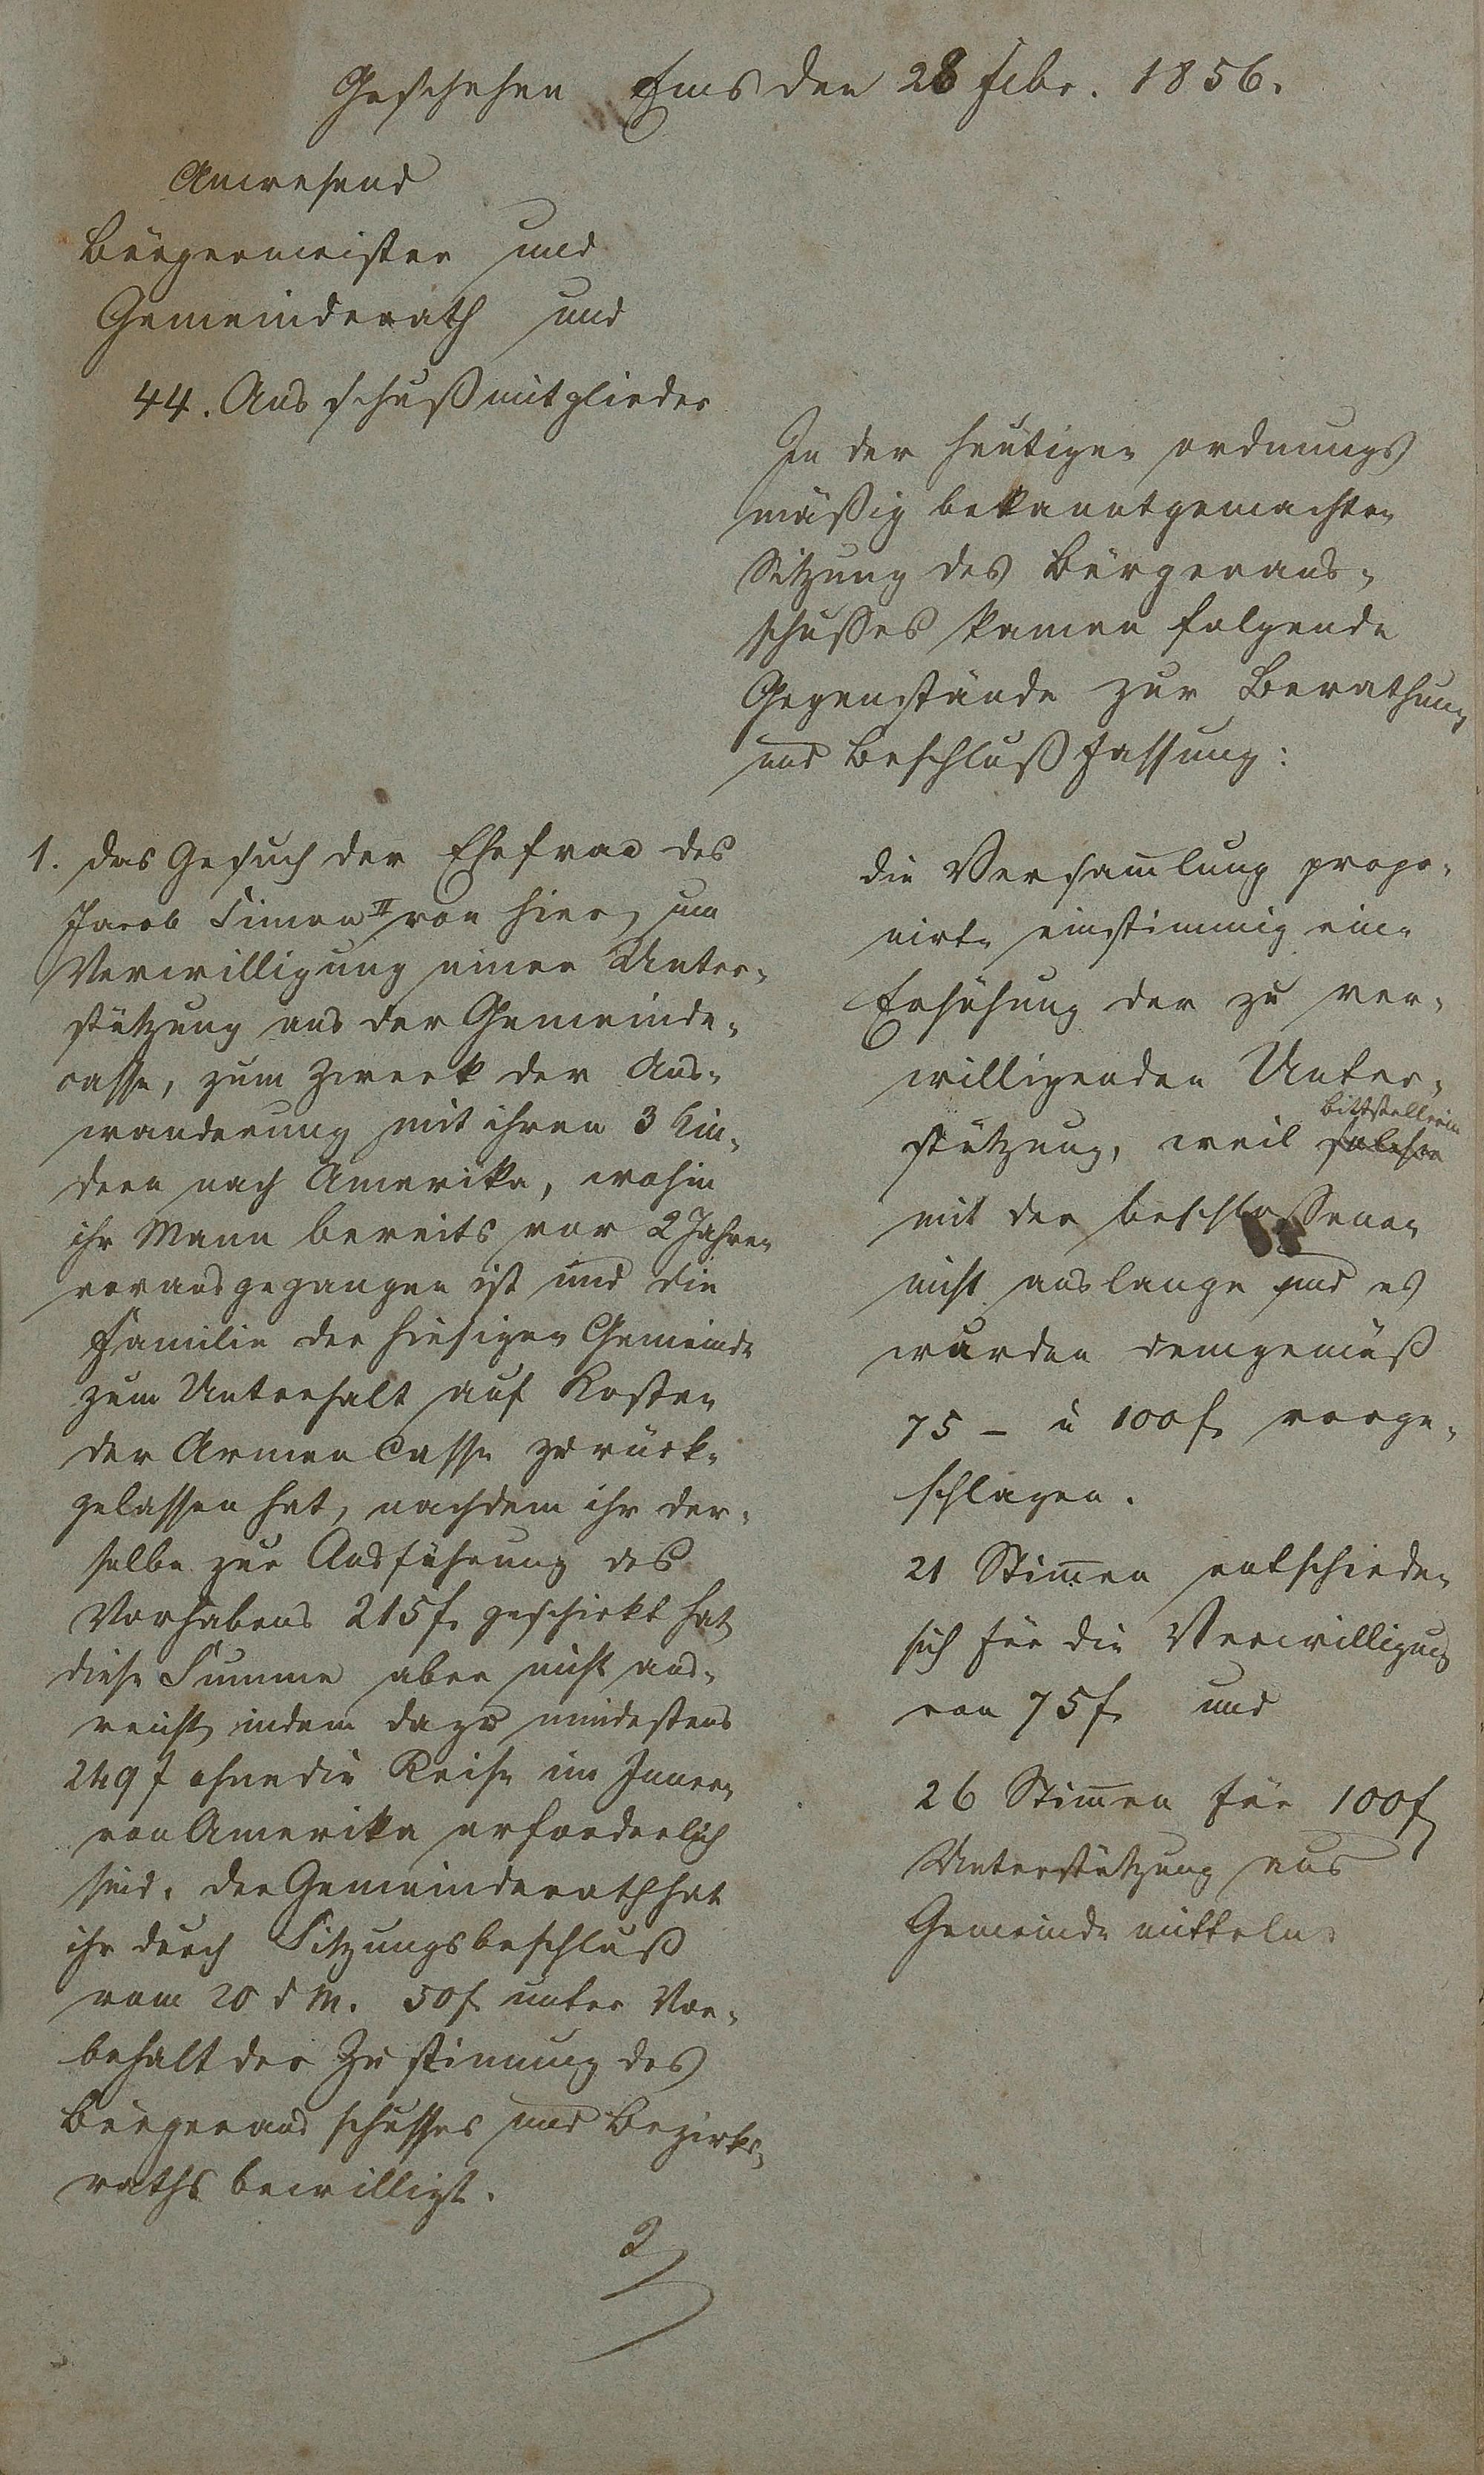 Geschehen Ems den 28 Febr. 1856.
Anwesend
Bürgermeister und
Gemeinderath und
44. Ausschußmitglieder
In der heutigen ordnungs
mäßig bekanntgemachten
Sitzung des Bürgeraus-
schusses kamen folgende
Gegenstände zur Berathung
und Beschlußfassung:
1. das Gesuch der Ehefrau des
Jacob Simon II von hier, um
Verwilligung einer Unter-
stützung aus der Gemeinde-
casse, zum Zweck der Aus-
wanderung mit ihren 3 Kin-
dern nach Amerika, wohin
ihr Mann bereits vor 2 Jahren
vorausgegangen ist und die
Familie der hiesigen Gemeinde
zum Unterhalt auf Kosten
der Armencasse zurück-
gelassen hat, nachdem ihr der-
selbe zur Ausführung des
Vorhabens 215 f. geschickt hat,
diese Summe aber nicht aus-
reicht, indem dazu mindestens
249 f ohne die Reise im Innern
von Amerika erforderlich
sind. Der Gemeinderath hat
ihr durch Sitzungsbeschluß
vom 20 d M. 50 f. unter Vor-
behalt der Zustimmung des
Bürgerausschusses und Bezirks-
raths bewilligt.
die Versam̄lung propo-
nirte einstimmig eine
Erhöhung der zu ver-
willigenden Unter-
stützung, weil solche Bittstellerin
mit der beschlossenen
nicht auslange und es
wurden demgemäß
75 - u 100 f. vorge-
schlagen.
21 Stim̄en entschieden
sich für die Verwilligung
von 75 f. und
26 Stim̄en für 100 f.
Unterstützung aus
Gemeindemitteln.
2